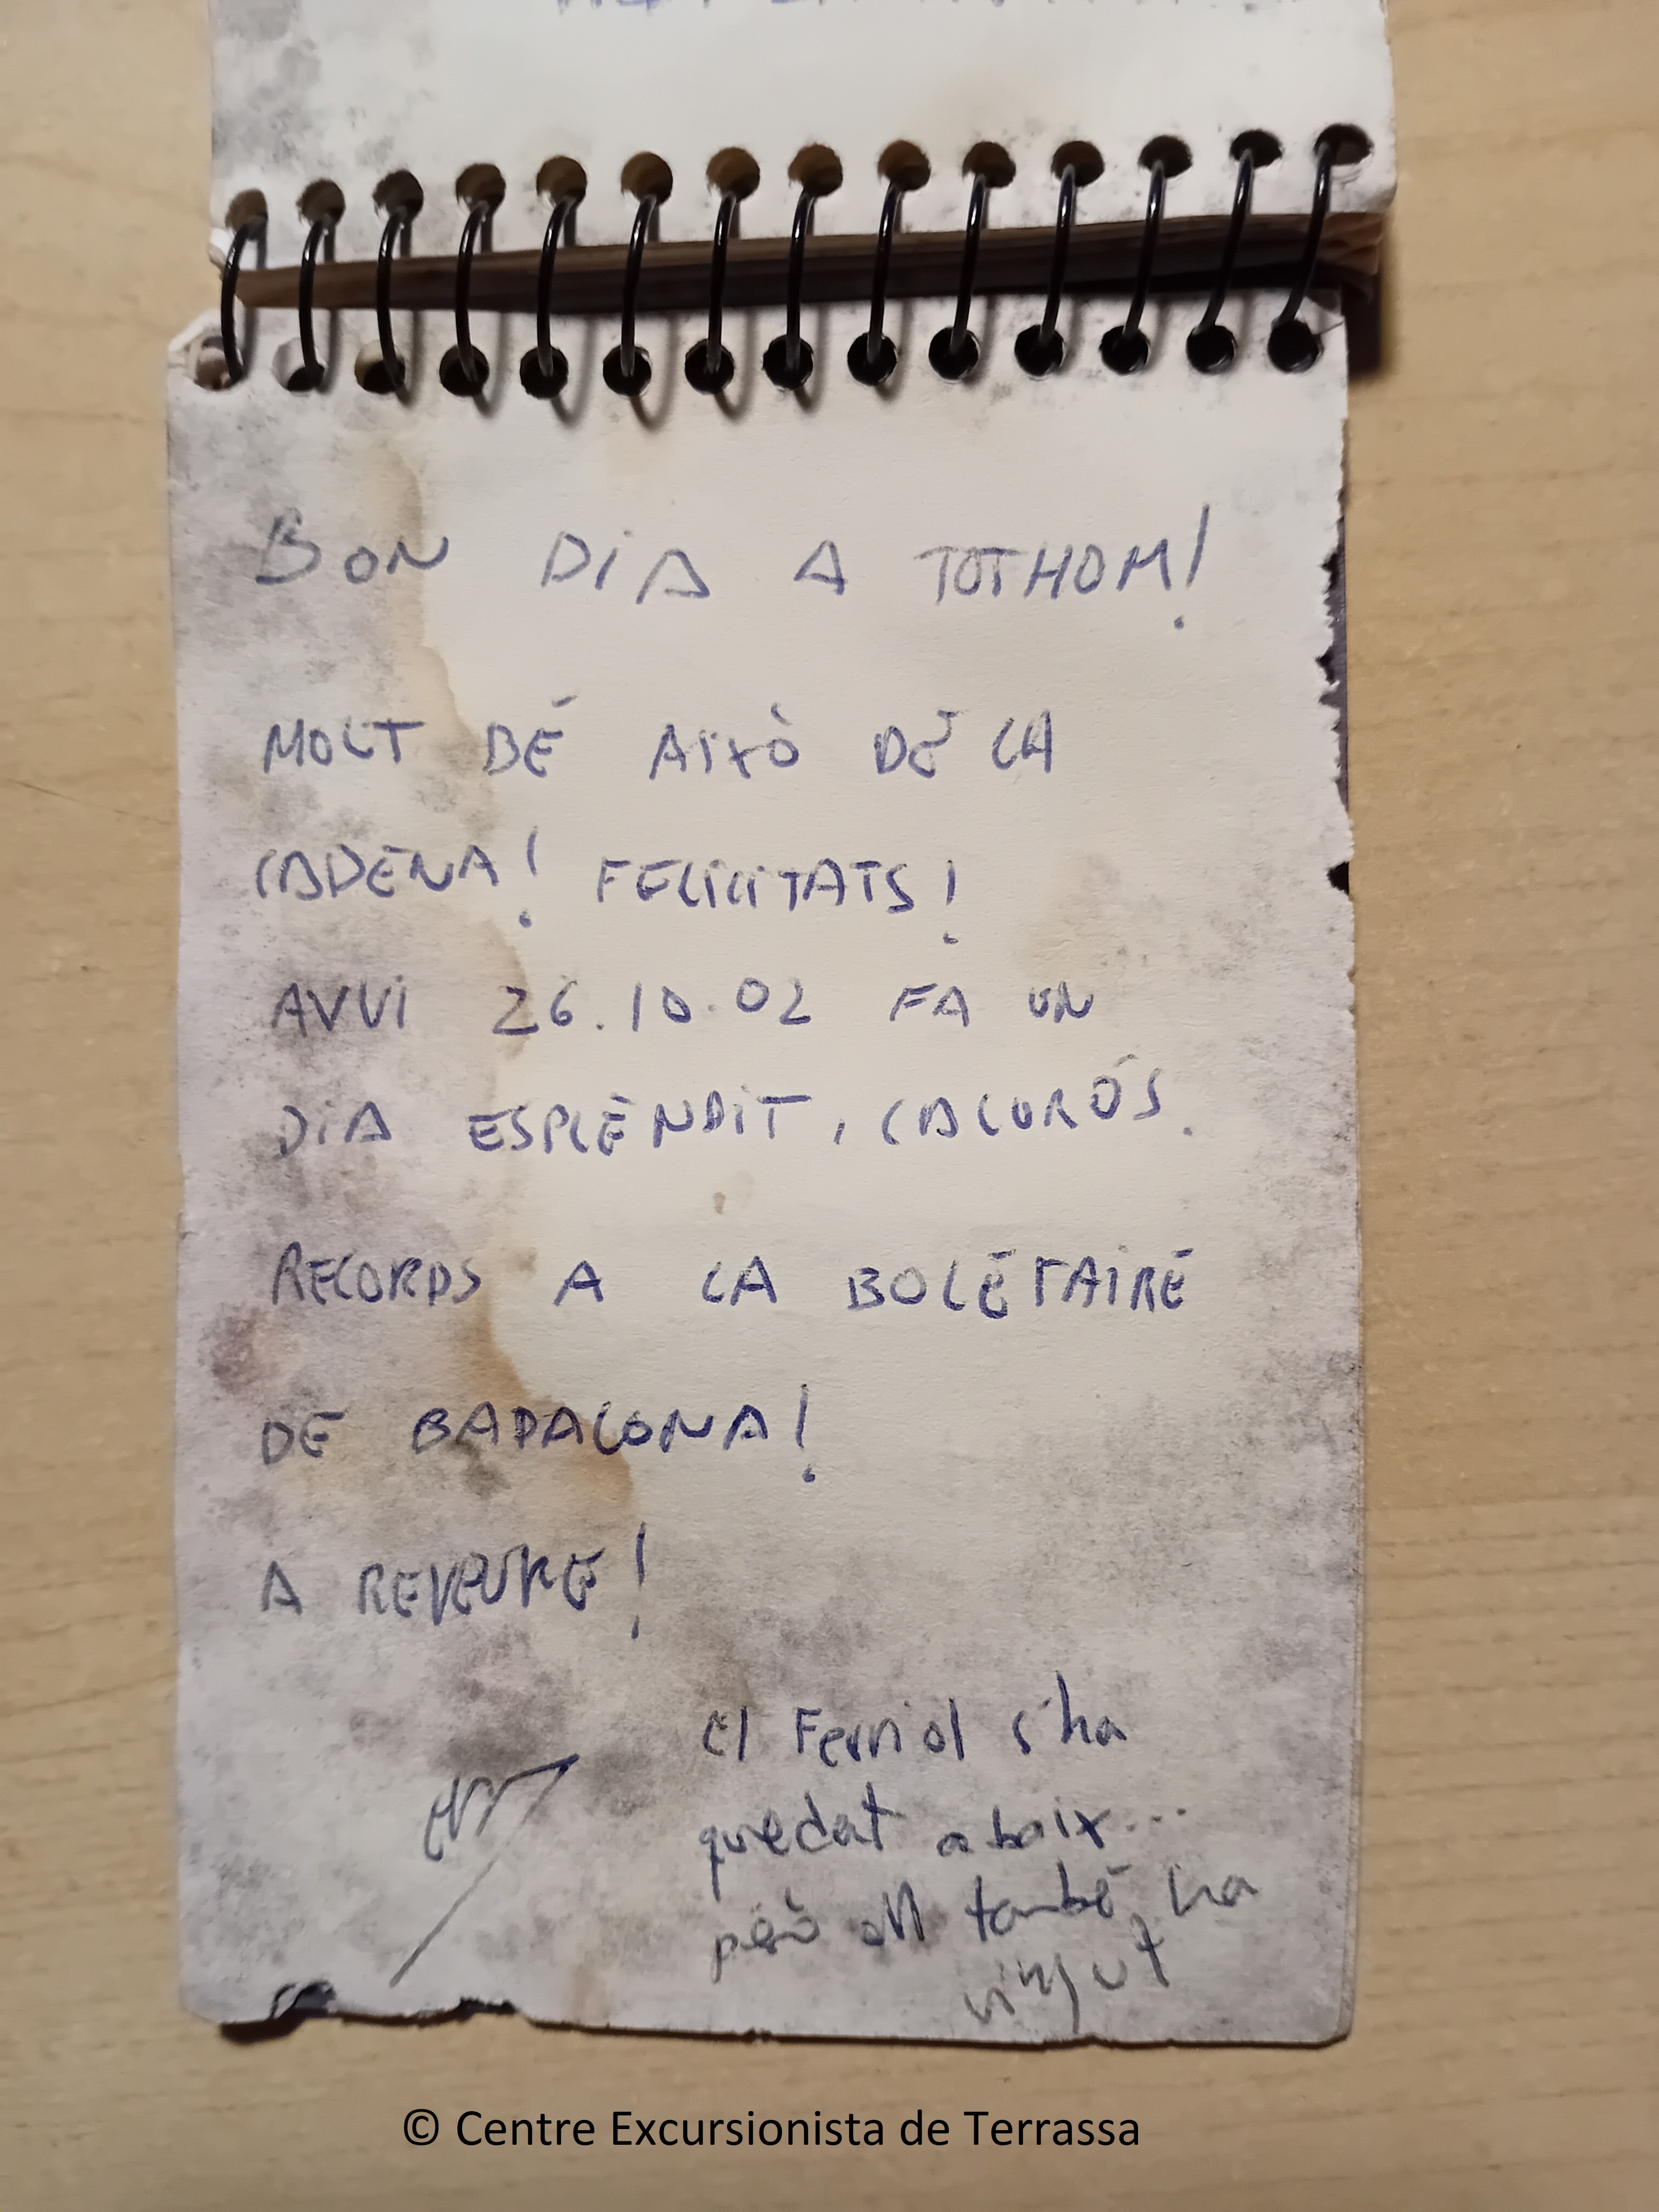 BON DIA A TOTHOM!
MOLT BÉ AIXÒ DE LA
CADENA! FELICITATS!
AVUI 26.10.02 FA UN
DIA ESPLÈNDIT, CALURÓS.
RECORDS A LA BOLETAIRE
DE BADALONA!
A REVEURE!
El Ferriol s'ha
quedat a baix...
però ell també ha
vingut
© Centre Excursionista de Terrassa